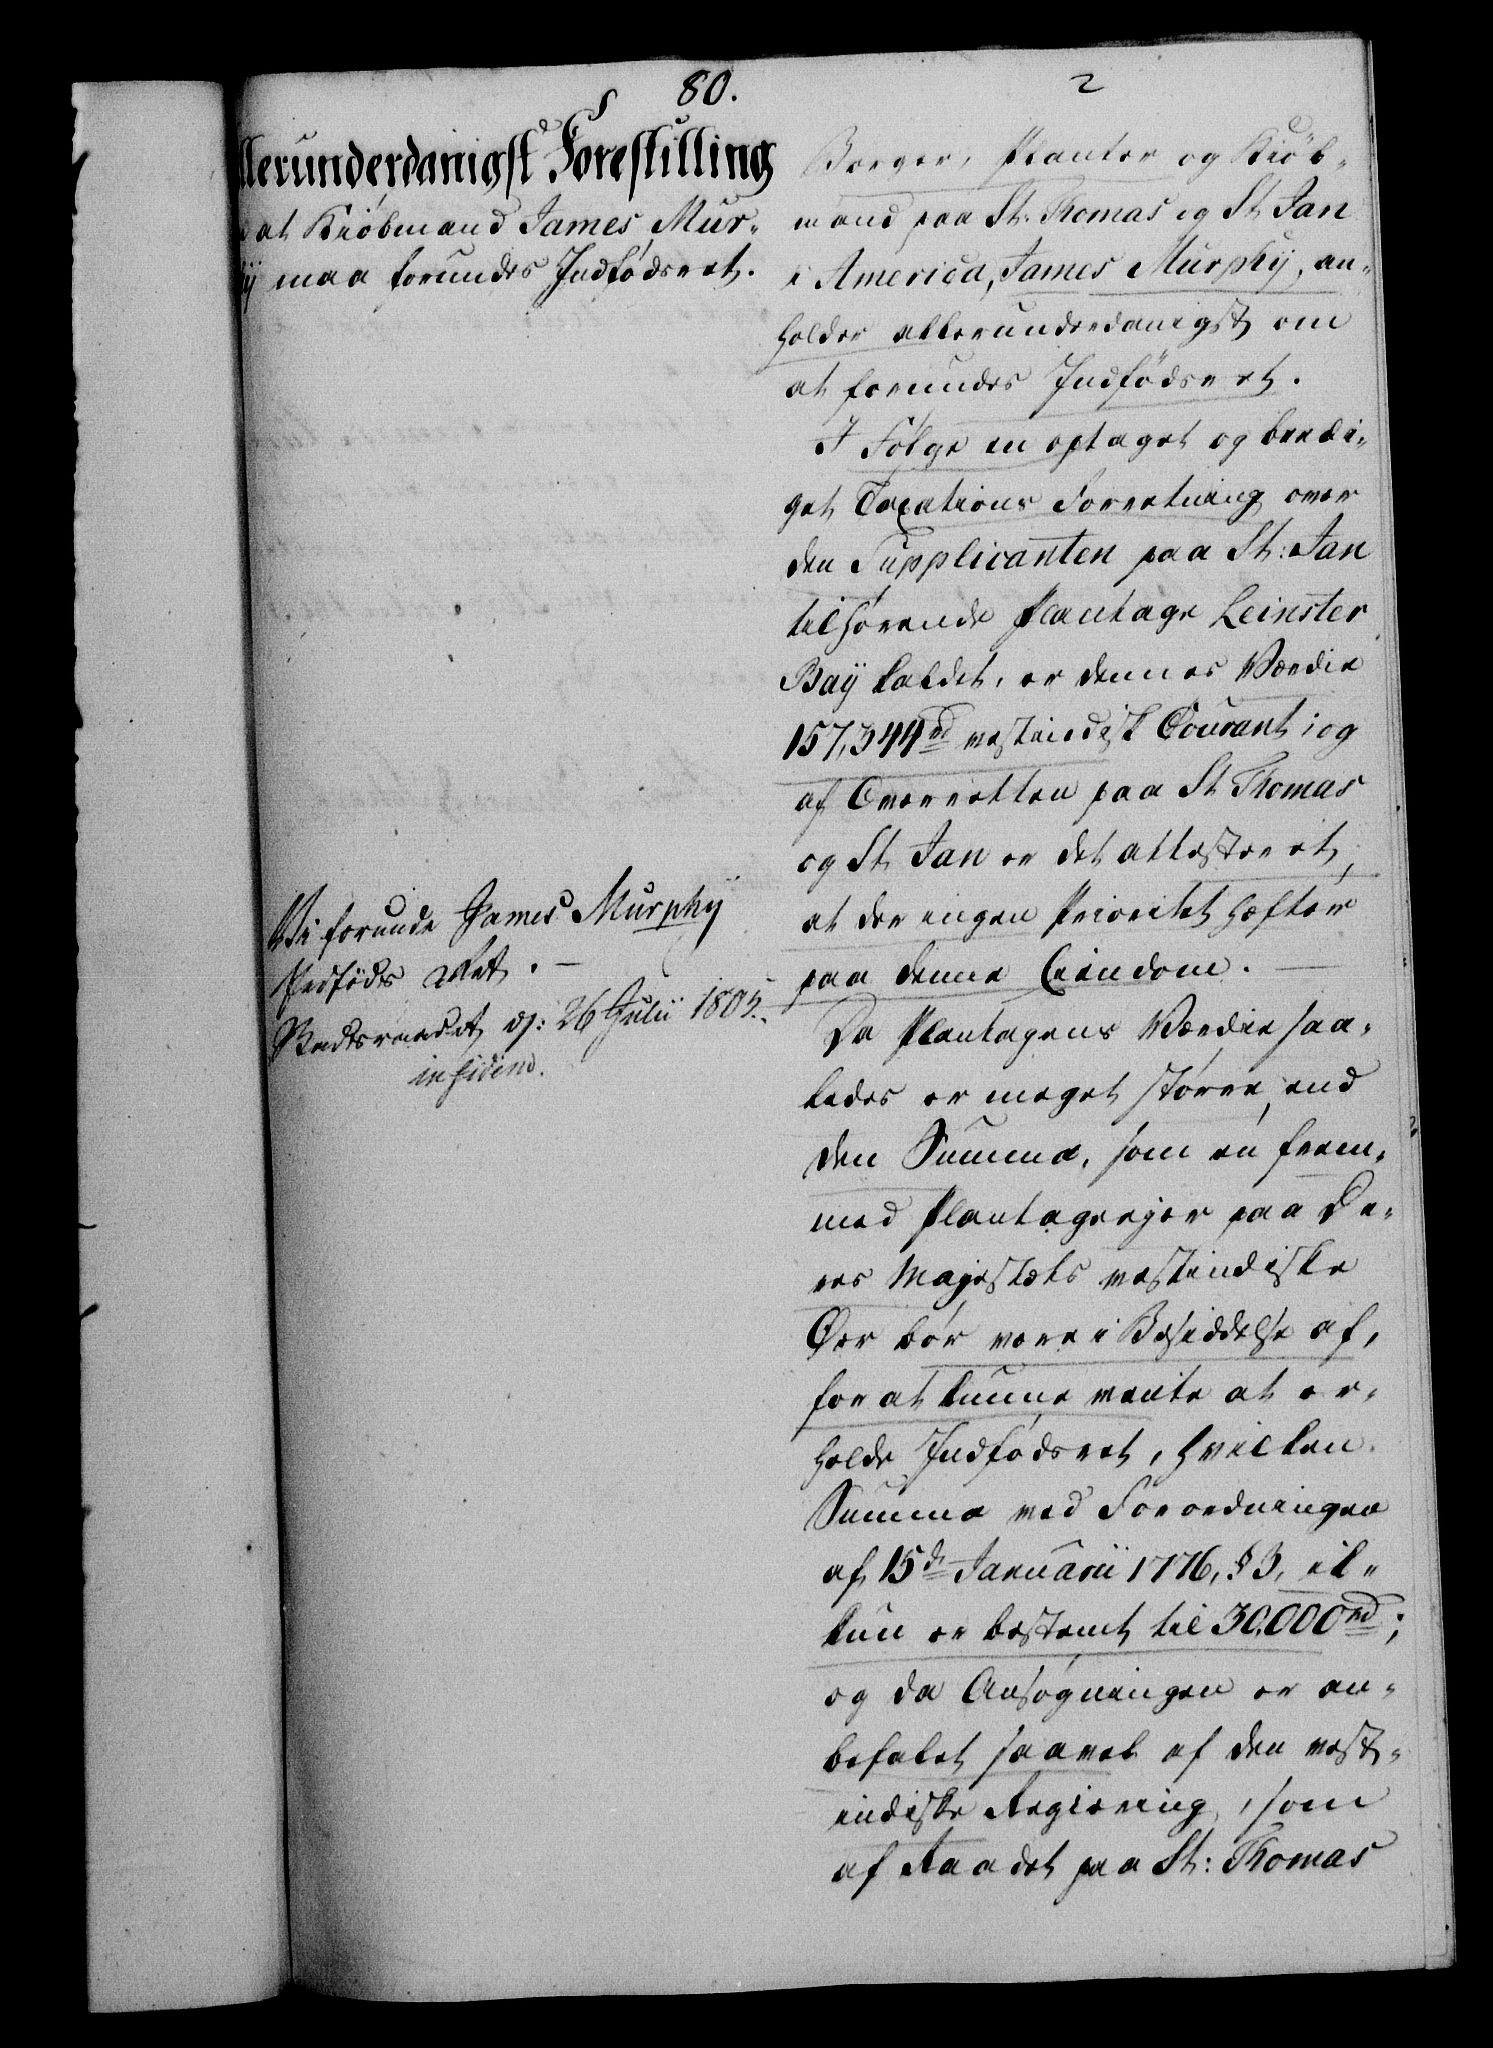 80.
2
llerunderdanigst Forestilling
at Kiöbmand James Mur-
ÿ maa forundes Indfödsret.
Vi forunde James Murphÿ
Indföds Ret. —
Stadsraadet d: 26 Julii 1805.
in fidem.
Borger, Planter og Kiöb-
mand paa St. Thomas og St Jan
i America, James Murphÿ, an-
holder allerunderdanigst om
at forundes Indfödsret.
I Fölge en optaget og beedi-
get Taxations Forretning over
den Supplicanten paa St: Jan
tilhörende Plantage Leinster
Baÿ kaldet, er dennes Værdie
157,344 rd vestindisk Courant; og
af Overretten paa St Thomas
og St Jan er det attesteret,
at der ingen Prioritet hæfter
paa denne Eiendom. —
Da Plantagens Værdie saa-
ledes er meget större, end
den Summa, som en frem-
med Plantageejer paa De-
res Majestæts vestindiske
Öer bör være i Besiddelse af,
for at kunne vente at er-
holde Indfödsret, hvilken
Summa ved Forordningen
af 15de Januarii 1776, § 3, ik-
kun er bestemt til 30,000 rd;
og da Ansögningen er an-
befalet saavel af den vest-
indiske Regiering, som
af Raadet paa St: Thomas